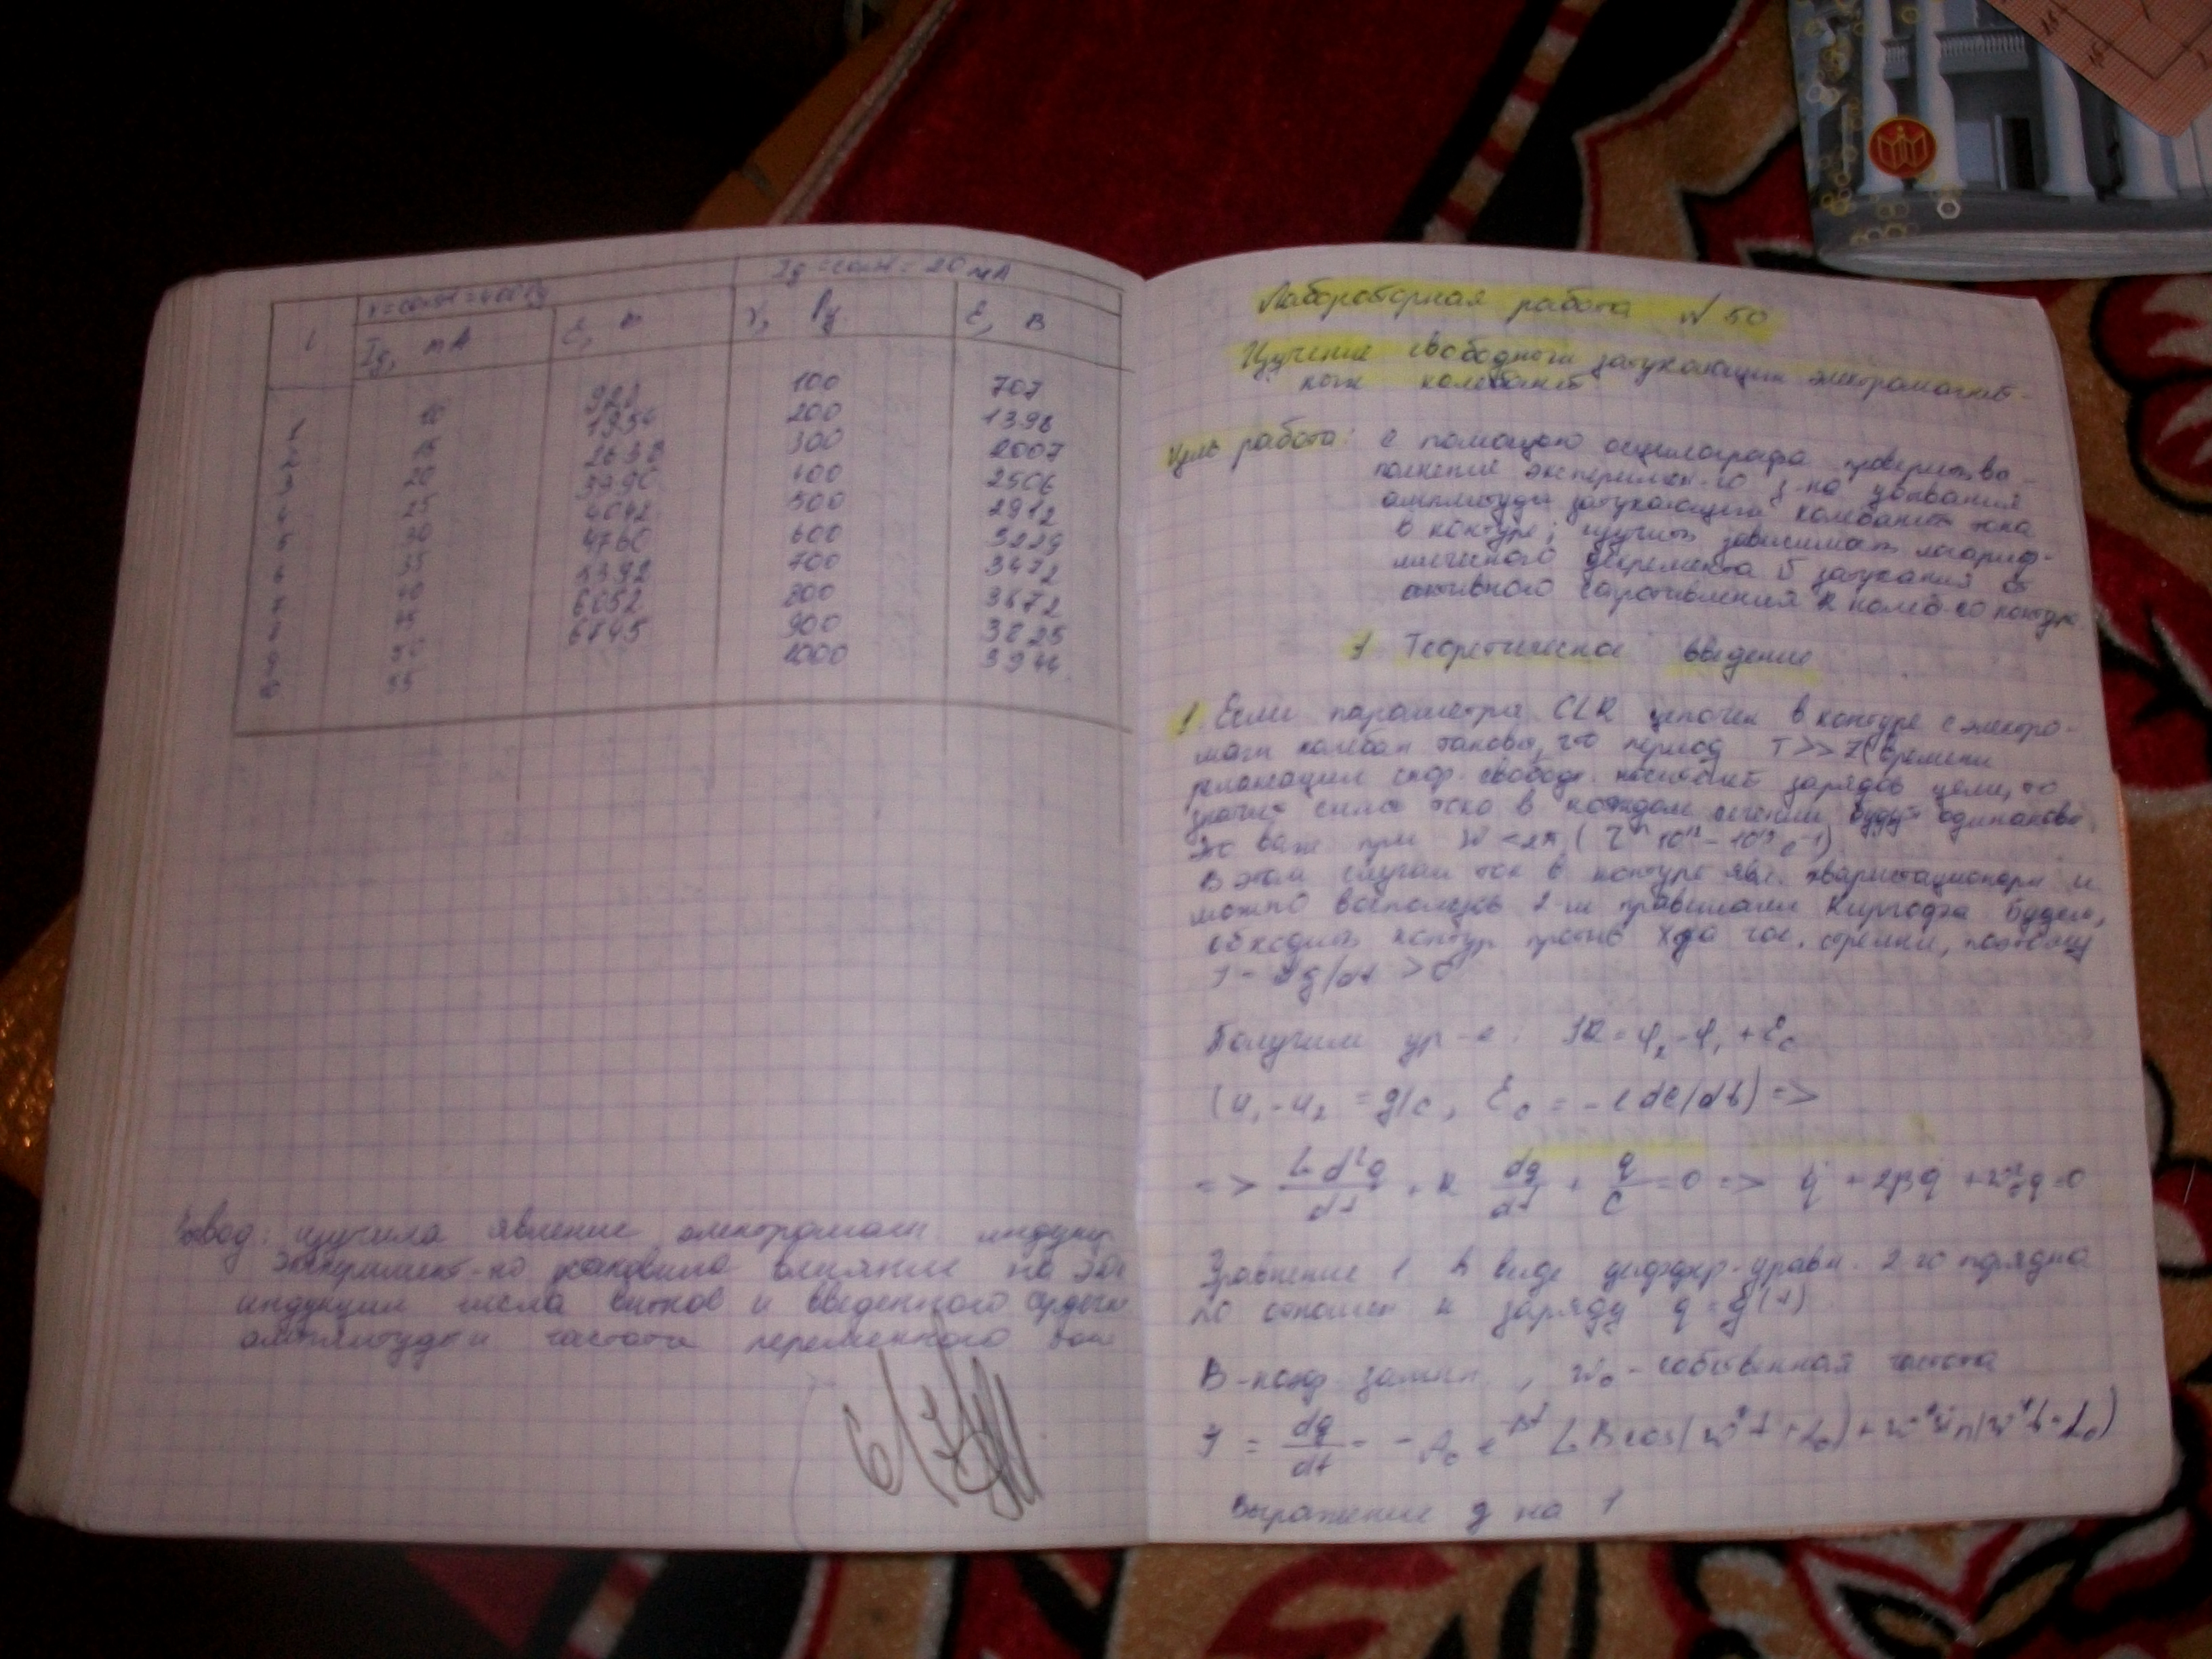 ν = const = 400 Гц
Ig = const = 20 мА
i
Ig, мА
ε, В
ν, Гц
ε, В
10 923 100 707
15 1954 200 1398
20 2638 300 2007
25 3390 400 2506
30 4042 500 2912
35 4760 600 3229
40 5392 700 3472
45 6052 800 3672
50 6745 900 3825
55 1000 3944
Вывод: изучила явление электромагн индукц
эксперимент-но установила влияние на эдс
индукции числа витков и введенного сердечн
амплитуды и частота переменного тока
Лабораторная работа № 50
Изучение свободного затухающих электромагнит-
ных колебаний
Цель работы: с помощью осцилографа проверить вы-
полнение эксперимен-го з-на убывания
амплитуды затухающих колебаний тока
в контуре; изучить зависимость логариф-
мического декремента δ затухания от
активного сопротивления R колеб-го контура
1 Теоретическое введение
1 Если параметры CLR цепочек в контуре с электро-
магн колебан таковы, что период T >> τ (времени
релаксации скор. свободн. носителей зарядов цепи, то
значит сила тока в каждом сечении будут одинаковы
Это важн при W < 2π (
В этом случаи ток в контуре явл. квазистационарн и
можно воспользов 2-м правилами Кирхгофа будем,
обходить контур против хода час. стрелки, поэтому
I = dq/dt > 0
Получим ур-е: IR = φ₂ - φ₁ + ε₀
(φ₁ - φ₂ = q/c, ε₀ = - L dI/dt) =>
=> L d²q/dt + R dq/dt + q/C = 0 => q̈ + 2βq̇ + w₀²q = 0
Уравнение 1 в виде диффер-уравн. 2-го порядка
по отношен к заряду q = q(t)
β-коэф затухн, w₀ - собственная частота
I = dq/dt = - A₀ e^-βt [β cos(w*t + α₀) + w* sin(w*t + α₀)
Выражение q на 1